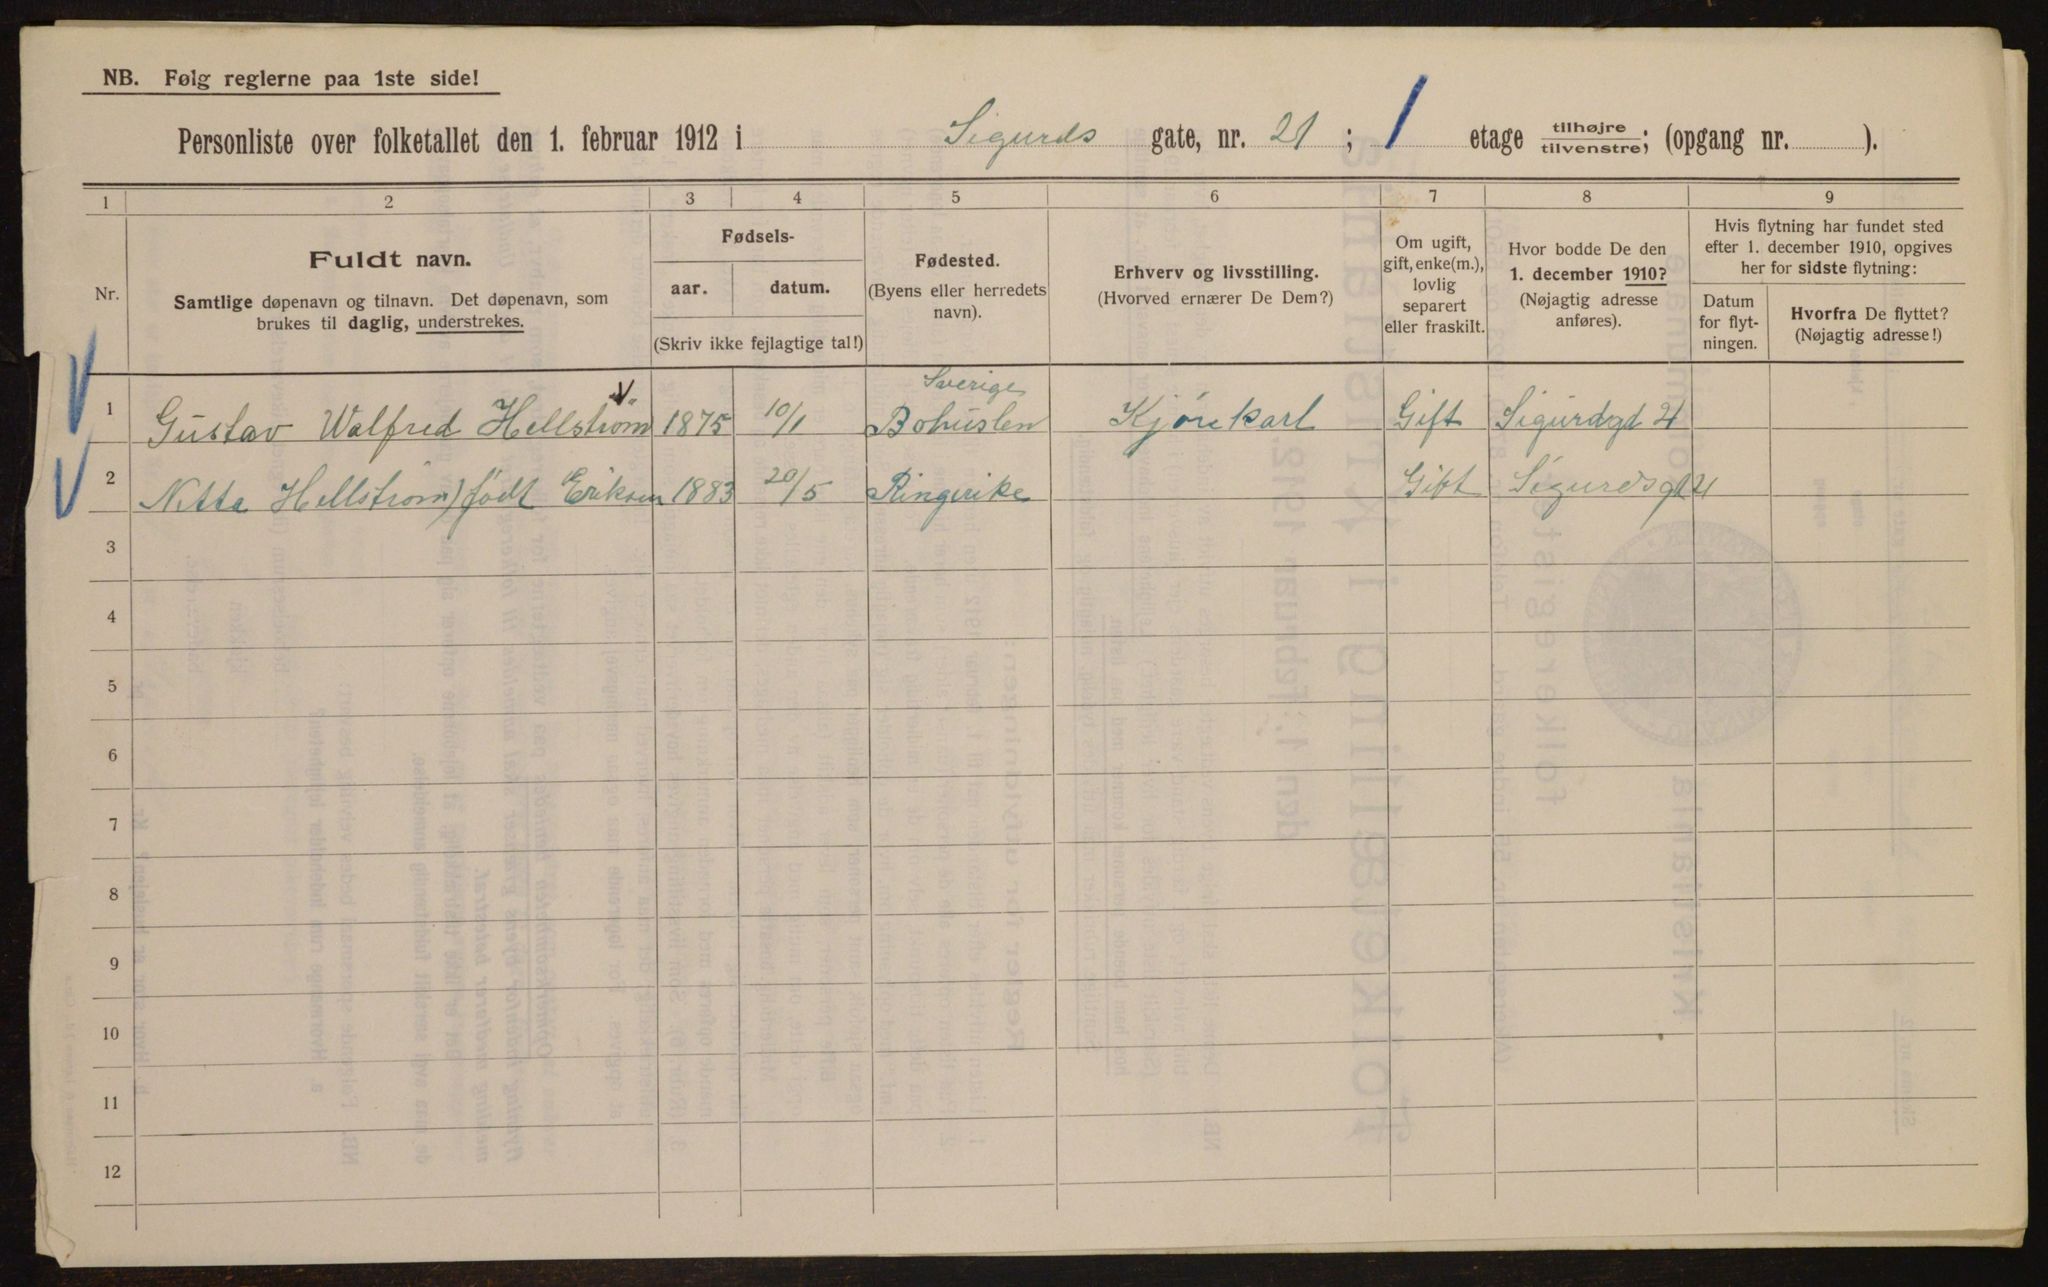 NB. Følg reglerne paa 1ste side!
Personliste over folketallet den 1. februar 1912 i Sigurds gate, nr. 21 ; 1 etage tilhøjre/tilvenstre; (opgang nr. ).
1 2 3 4 5 6 7 8 9
Nr.
Fuldt navn.
Samtlige døpenavn og tilnavn. Det døpenavn, som
brukes til daglig, understrekes.
Fødsels-
aar. datum.
(Skriv ikke fejlagtige tal!)
Fødested.
(Byens eller herredets
navn).
Erhverv og livsstilling.
(Hvorved ernærer De Dem?)
Om ugift,
gift, enke(m.),
lovlig
separert
eller fraskilt.
Hvor bodde De den
1. december 1910?
(Nøjagtig adresse
anføres).
Hvis flytning har fundet sted
efter 1. december 1910, opgives
her for sidste flytning:
Datum
for flyt-
ningen.
Hvorfra De flyttet?
(Nøjagtig adresse!)
Sverige
1 Gustav Walfred Hellstrøm 1875 10/1 Bohuslen Kjørekarl Gift Sigurdgt 21
2 Nitta Hellstrøm) født Eriksen 1883 20/5 Ringerike Gift Sigurdsgt 21
3
4
5
6
7
8
9
10
11
12